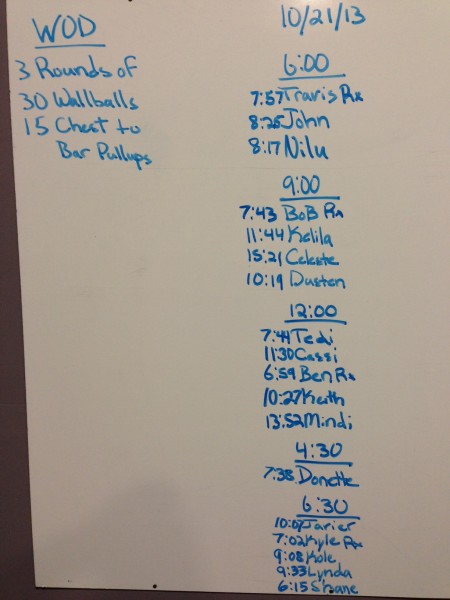 WOD
3 Rounds of
30 Wallballs
15 Chest to
Bar Pullups
10/21/13
6:00
7:57 Travis Rx
8:25 John
8:17 Nilu
9:00
7:43 BoB Rx
11:44 Kelila
15:21 Celeste
10:19 Dusten
12:00
7:44 Tedi
11:30 Cassi
6:59 Ben Rx
10:27 Keith
13:52 Mindi
4:30
7:38 Donette
6:30
10:07 Javier
7:02 Kyle Rx
9:08 Kole
9:33 Lynda
6:15 Shane